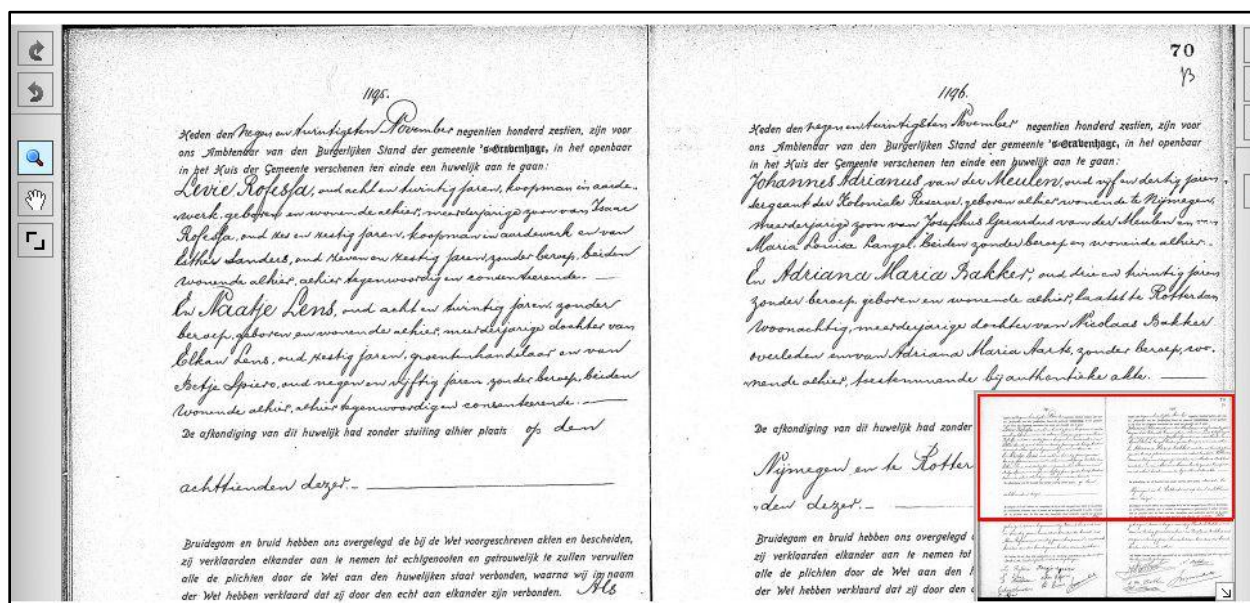 1195.
Heden den negen en twintigsten November negentien honderd zestien, zijn voor
ons Ambtenaar van den Burgerlijken Stand der gemeente 's-Gravenhage, in het openbaar
in het Huis der Gemeente verschenen ten einde een huwelijk aan te gaan:
Levie Rofessa, oud acht en twintig jaren, koopman in aarde-
werk, geboren en wonende alhier, meerderjarige zoon van Isaac
Rofessa, oud zes en zestig jaren, koopman in aardewerk en van
Esther Sanders, oud zeven en zestig jaren, zonder beroep, beiden
wonende alhier, alhier tegenwoordig en consenteerende. —
En Naatje Lens, oud acht en twintig jaren, zonder
beroep, geboren en wonende alhier, meerderjarige dochter van
Elkan Lens, oud zestig jaren, groentenhandelaar en van
Betje Spiero, oud negen en vijftig jaren, zonder beroep, beiden
wonende alhier, alhier tegenwoordig en consenteerende. —
De afkondiging van dit huwelijk had zonder stuiting alhier plaats op den
achttienden dezer. —
Bruidegom en bruid hebben ons overgelegd de bij de Wet voorgeschreven akten en bescheiden,
zij verklaarden elkander aan te nemen tot echtgenooten en getrouwelijk te zullen vervullen
alle de plichten door de Wet aan den huwelijken staat verbonden, waarna wij in naam
der Wet hebben verklaard dat zij door den echt aan elkander zijn verbonden. Als
70
1196.
Heden den negen en twintigsten November negentien honderd zestien, zijn voor
ons Ambtenaar van den Burgerlijken Stand der gemeente 's-Gravenhage, in het openbaar
in het Huis der Gemeente verschenen ten einde een huwelijk aan te gaan:
Johannes Adrianus van der Meulen, oud vijf en dertig jaren
sergeant der Koloniale Reserve, geboren alhier, wonende te Nijmegen,
meerderjarige zoon van Josephus Gerardus van der Meulen en van
Maria Louisa Langel, beiden zonder beroep en wonende alhier. —
En Adriana Maria Bakker, oud drie en twintig jaren
zonder beroep, geboren en wonende alhier, laatst te Rotterdam
woonachtig, meerderjarige dochter van Nicolaas Bakker
overleden en van Adriana Maria Aarts, zonder beroep, wo-
nende alhier, toestemmende bij authentieke akte. —
De afkondiging van dit huwelijk had zonder
Nijmegen en te Rotter
den dezer. —
Bruidegom en bruid hebben ons overgelegd
zij verklaarden elkander aan te nemen tot
alle de plichten door de Wet aan den
der Wet hebben verklaard dat zij door den